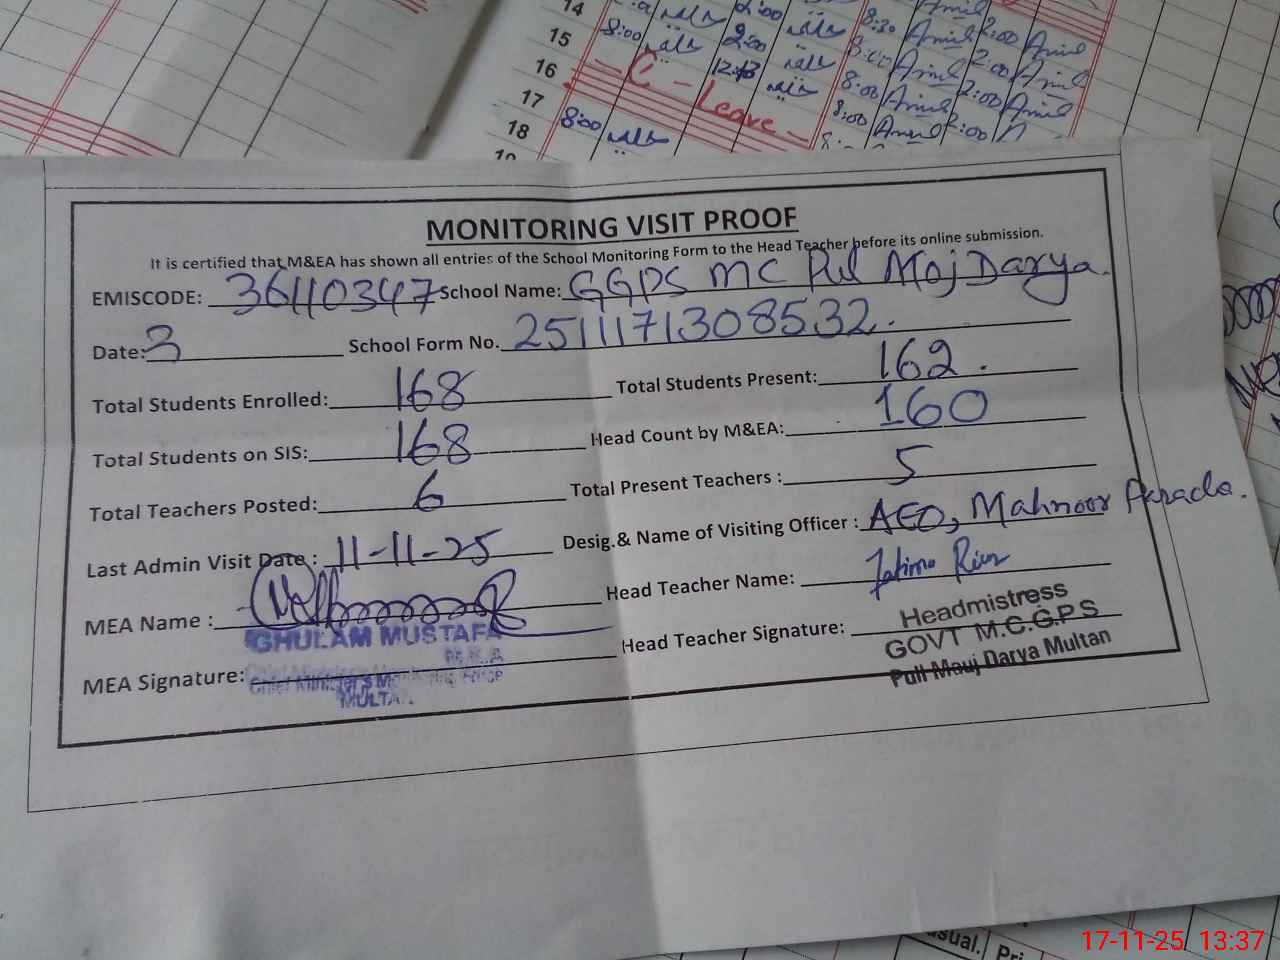 14 2:00 8:30 Amil 2:00 Amil
15 8:00 2:00 8:00 Amil 2:00 Amil
16 8:00 Amil 2:00 Amil
- C - Leave -
17 8:00 Amil 2:00
18 8:00
MONITORING VISIT PROOF
It is certified that M&EA has shown all entries of the School Monitoring Form to the Head Teacher before its online submission.
EMISCODE: 36110347 School Name: GGPS MC Pul Moj Darya.
Date: 3 School Form No. 2511171308532.
Total Students Enrolled: 168 Total Students Present: 162.
Total Students on SIS: 168 Head Count by M&EA: 160
Total Teachers Posted: 6 Total Present Teachers : 5
Last Admin Visit Date : 11-11-25 Desig.& Name of Visiting Officer : AEO, Mahnoor
MEA Name : Head Teacher Name: Fatima
GHULAM MUSTAFA
MEA Signature: Chief Minister's Monitoring Force
MULTAN
Head Teacher Signature: Headmistress
GOVT M.C.G.P.S
Pull Mauj Darya Multan
usual. Pri
17-11-25 13:37